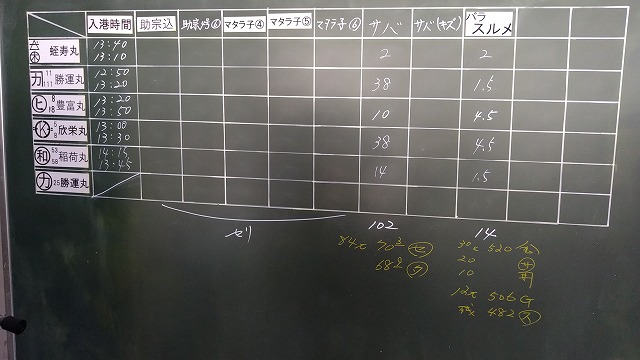 入港時間 助宗込 助宗卵④ マタラ子④ マタラ子⑤ マタラ子⑥ サバ サバ(キズ) バラスルメ
蛭寿丸 13:40 13:10 2 2
11 勝運丸 12:50 13:20 38 1.5
ヒ 8 18 豊富丸 13:20 13:50 10 4.5
K 欣栄丸 13:00 13:30 38 4.5
和 53 58 稲荷丸 14:15 13:45 14 1.5
カ 25 勝運丸
ゼリ 102 14
702 30 520
682 20
10
506
482